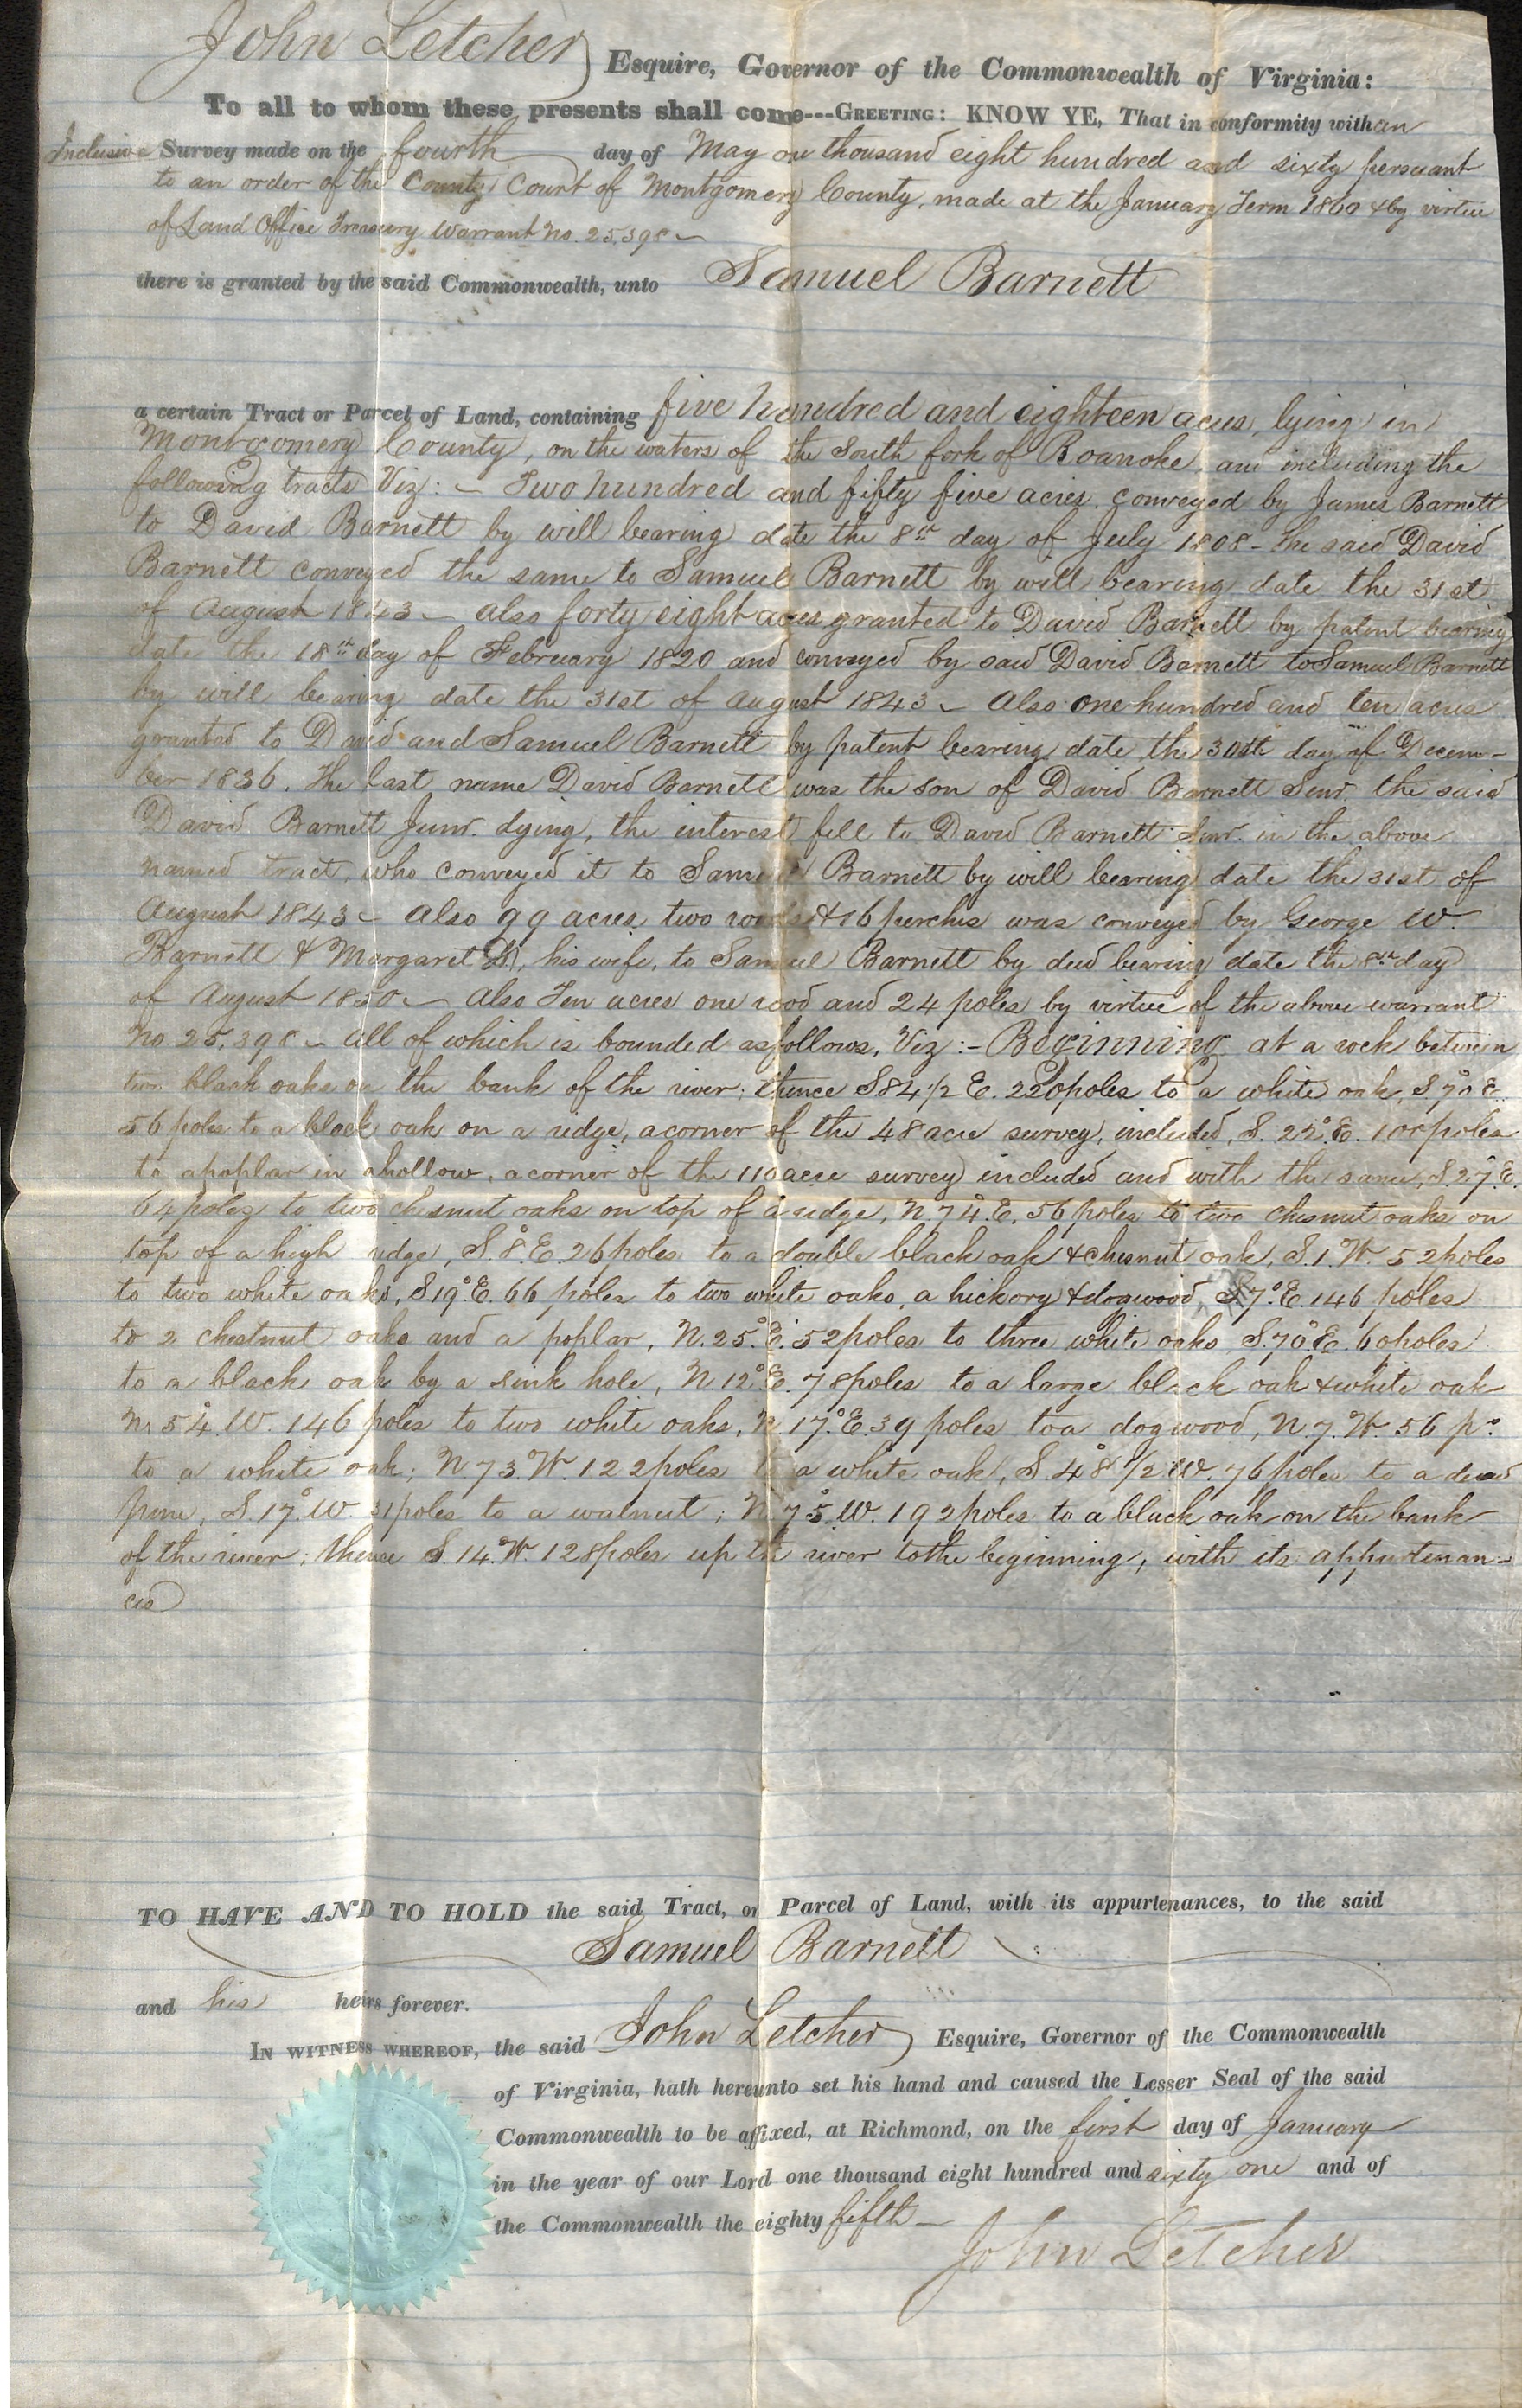 John Letcher Esquire, Governor of the Commonwealth of Virginia:
To all to whom these presents shall come---GREETING: KNOW YE, That in conformity with an
Inclusive Survey made on the fourth day of May on thousand eight hundred and sixty persuant
to an order of the County Court of Montgomery County, made at the January Term 1860 & by virtue
of Land Office Treasury Warrant No. 25,398 ~
there is granted by the said Commonwealth, unto Samuel Barnett
a certain Tract or Parcel of Land, containing five hundred and eighteen acres, lying in
Montgomery County, on the waters of the South fork of Roanoke, and including the
following tracts Viz: ~ Two hundred and fifty five acres conveyed by James Barnett
to David Barnett by will bearing date the 8th day of July 1808 - the said David
Barnett conveyed the same to Samuel Barnett by will bearing date the 31st
of August 1843 ~ also forty eight acres granted to David Barnett by patent bearing
date the 18th day of February 1820 and conveyed by said David Barnett to Samuel Barnett
by will bearing date the 31st of August 1843 ~ Also one hundred and ten acres
granted to David and Samuel Barnett by patent bearing date the 30th day of Decem-
ber 1836. The last name David Barnett was the son of David Barnett Senr. the said
David Barnett Junr. dying, the interest fell to David Barnett Senr. in the above
named tract, who conveyed it to Samuel Barnett by will bearing date the 31st of
August 1843 ~ Also 99 acres, two roods & 16 perches was conveyed by George W.
Barnett & Margaret his wife, to Samuel Barnett by deed bearing date the 8th day
of August 1850 ~ Also Ten acres one rood and 24 poles by virtue of the above warrant
No. 25,398 ~ all of which is bounded as follows, Viz:- Beginning at a rock between
two black oaks on the bank of the river; thence S 84 1/2 E. 220 poles to a white oak, S 70° E.
56 poles to a black oak on a ridge, a corner of the 48 acre survey, included, S. 22° E. 108 poles
to a poplar in a hollow, a corner of the 110 acre survey included and with the same, S. 27° E.
64 poles to two chesnut oaks on top of a ridge, N. 74° E. 56 poles to two chesnut oaks on
top of a high ridge, S. 8° E. 26 poles to a double black oak & chesnut oak, S. 1 W. 52 poles
to two white oaks, S 19° E. 66 poles to two white oaks, a hickory & dogwood, S. 7° E. 146 poles
to 2 chestnut oaks and a poplar, N. 25° E. 52 poles to three white oaks S. 70° E. 60 poles
to a black oak by a sink hole, N. 12° E. 78 poles to a large black oak & white oak
N. 54° W. 146 poles to two white oaks, N. 17° E. 39 poles to a dogwood, N. 7. W. 56 p.s
to a white oak; N 73. W. 122 poles to a white oak, S. 48° 1/2 W. 76 poles to a dead
pine, S. 17° W. 31 poles to a walnut; N. 75° W. 192 poles to a black oak on the bank
of the river; thence S. 14° W. 128 poles up the river to the beginning, with its appurtenan-
ces
TO HAVE AND TO HOLD the said Tract, or Parcel of Land, with its appurtenances, to the said
Samuel Barnett
and his heirs forever.
IN WITNESS WHEREOF, the said John Letcher Esquire, Governor of the Commonwealth
of Virginia, hath hereunto set his hand and caused the Lesser Seal of the said
Commonwealth to be affixed, at Richmond, on the first day of January
in the year of our Lord one thousand eight hundred and sixty one and of
the Commonwealth the eighty fifth ~
John Letcher